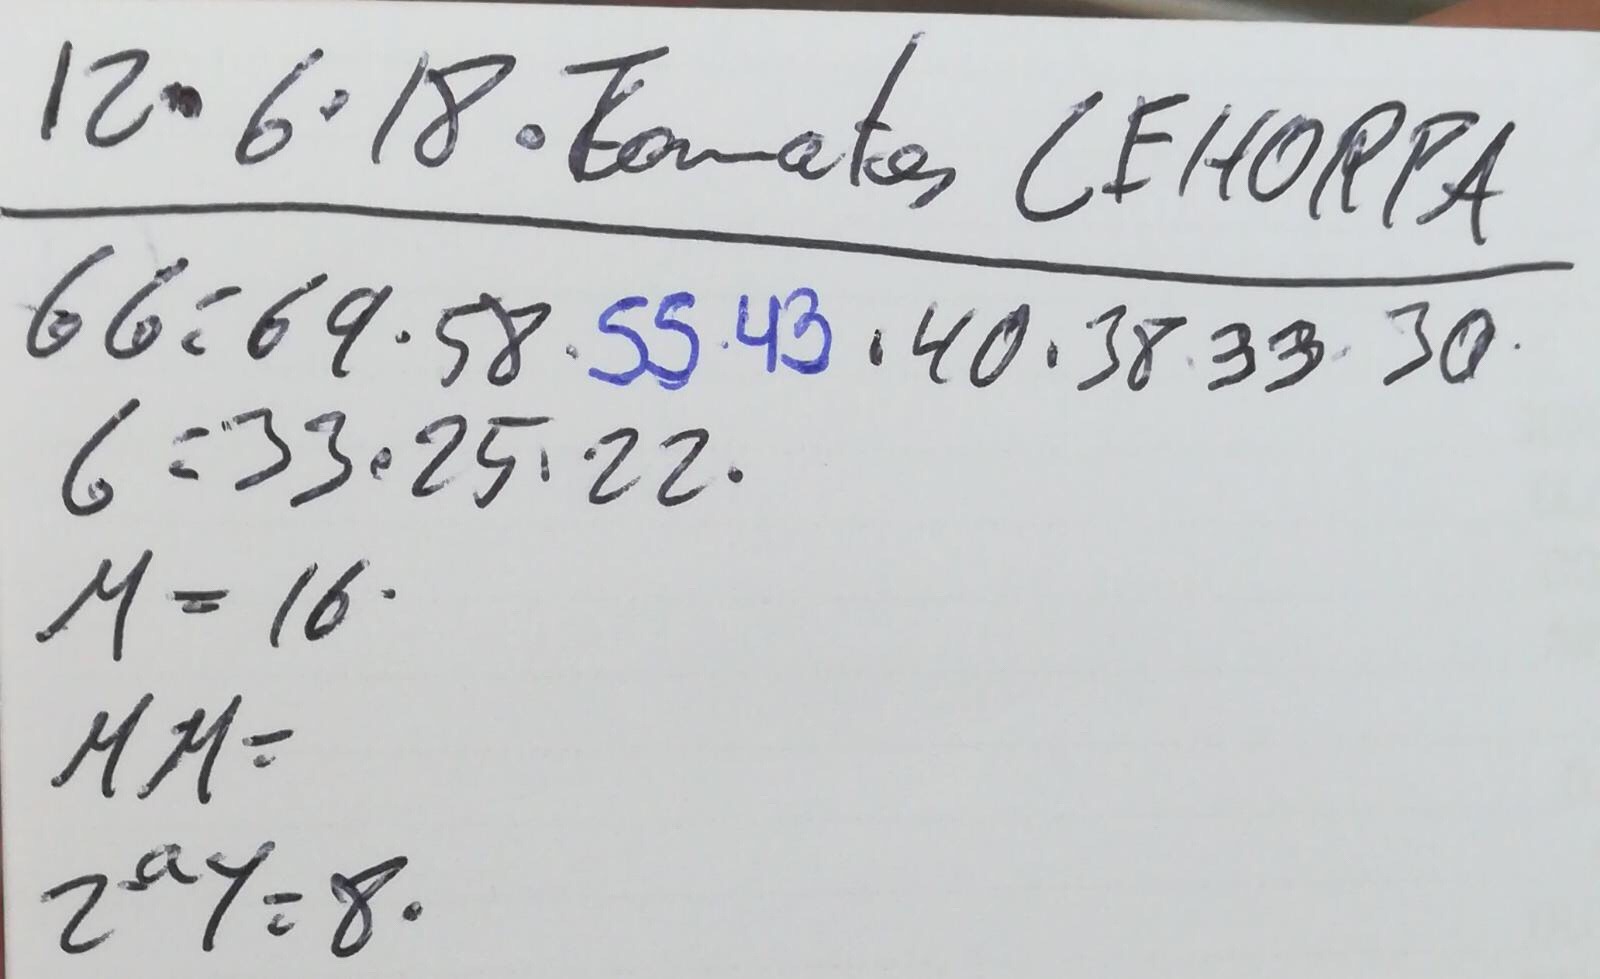 12.6.18. Tomates CEHORPA
66=69.58.55.43.40.38.33.30.
6=33.25.22.
M=16.
MM=
2ªY=8.